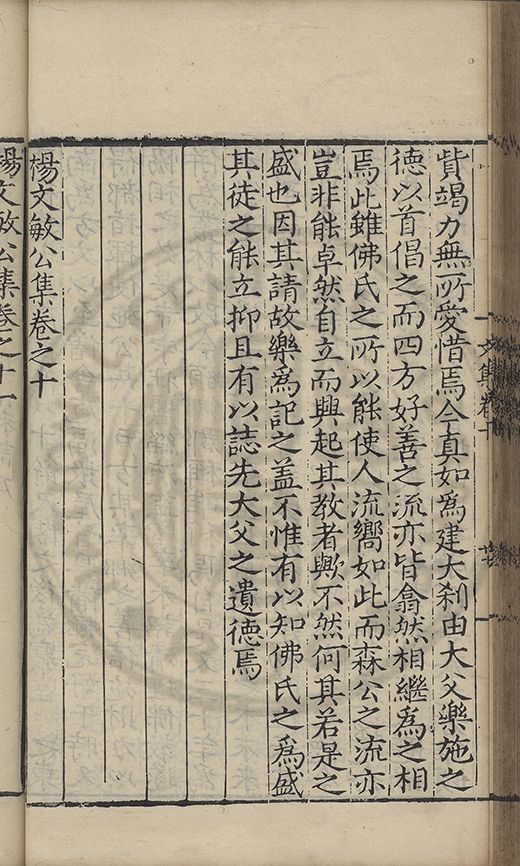 貲竭力無所愛惜焉今真如為建大刹由大父樂施之
德以首倡之而四方好善之流亦皆翕然相繼為之相
焉此雖佛氏之所以能使人流嚮如此而森公之流亦
豈非能卓然自立而興起其教者歟不然何其若是之
盛也因其請故樂為記之盖不惟有以知佛氏之為盛
其徒之能立抑且有以誌先大父之遺德焉
楊文敏公集卷之十
楊文敏公集卷之十一